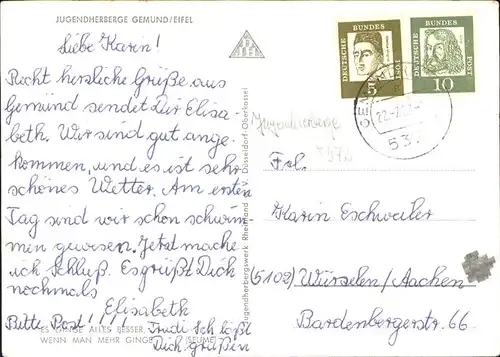 JUGENDHERBERGE GEMUND/EIFEL
Liebe Karin!
Recht herzliche Grüße aus
Gemünd sendet Dir Elisa-
beth. Wir sind gut ange-
kommen, und es ist sehr
schönes Wetter. Am ersten
Tag sind wir schon schwim-
men gewesen. Jetzt mache
ich Schluß. Es grüßt Dich
nochmals
Elisabeth
Bitte Post!!!
Trudi Sch läßt
Dich grüßen
ES GINGE ALLES BESSER,
WENN MAN MEHR GINGE (SEUME)
Jugendherbergswerk Rheinland e.V. Düsseldorf-Oberkassel
DEUTSCHE BUNDESPOST
5
DEUTSCHE BUNDESPOST
10
Jugendherberge
Frl.
Karin Eschweiler
(5102) Würselen/Aachen
Bardenbergerstr. 66